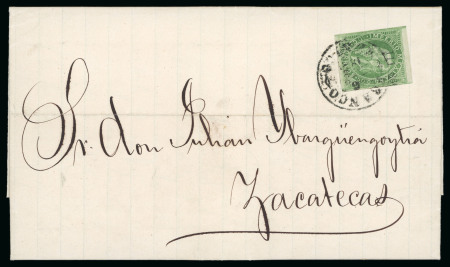 Sr. don Julian Ybargüengoytia
Zacatecas